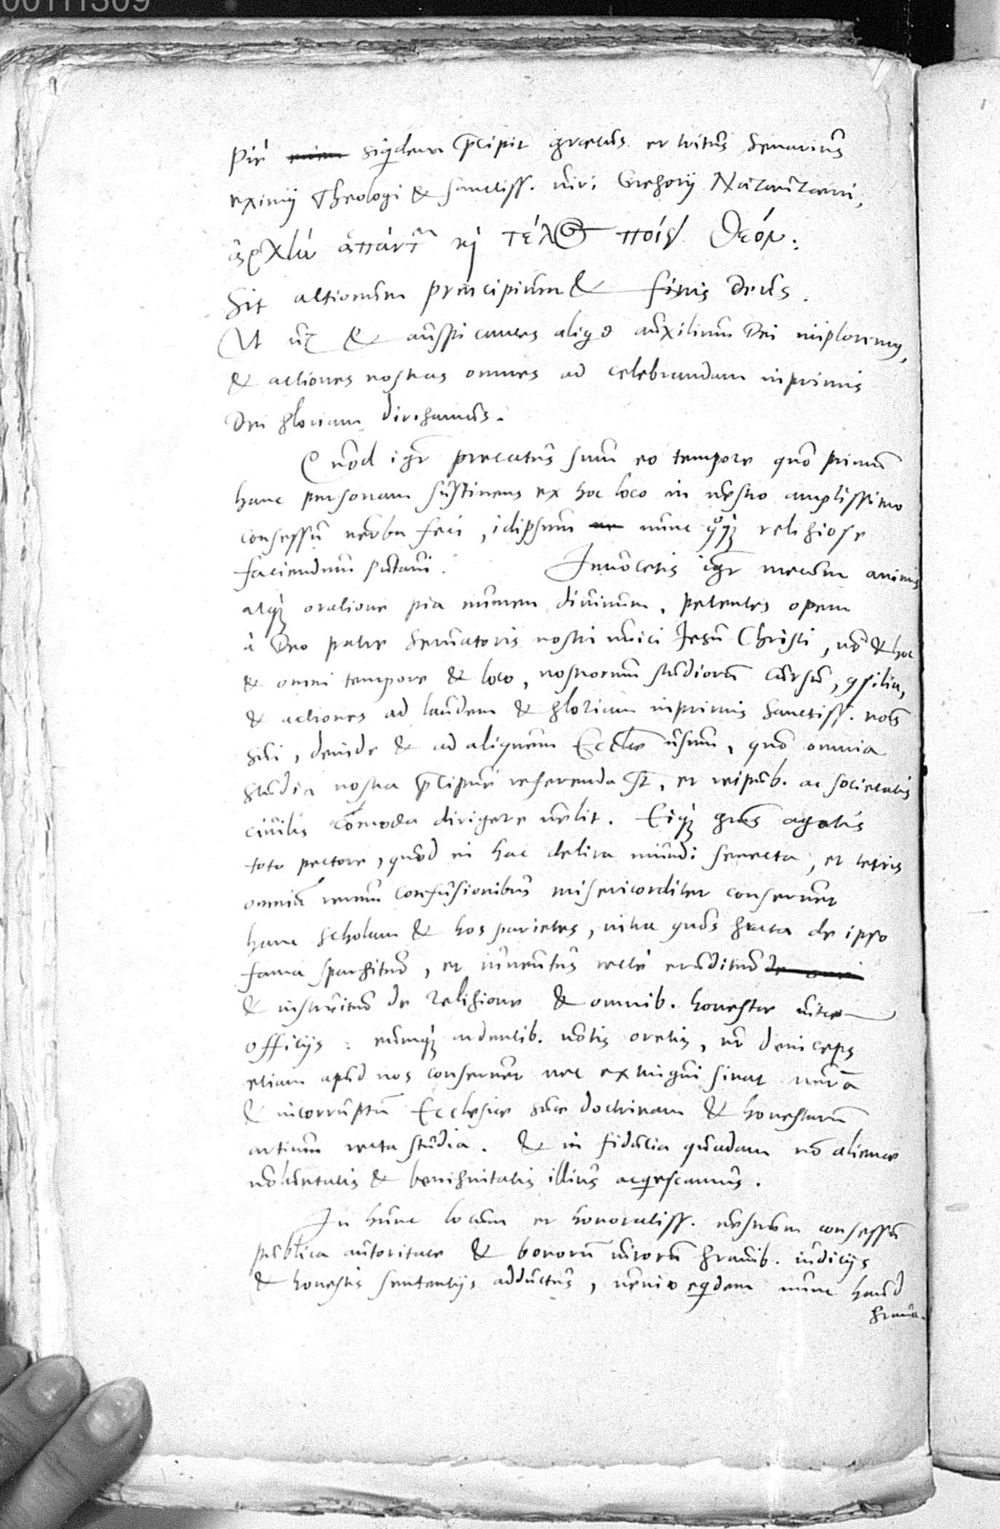 00111309
Piè siqdem p̄cipit græcus et tritus Senarius
eximij Theologi & sanctiss. viri Gregorij Nazianzeni,
ἀρχὴν ἁπάντων καὶ τέλος ποίει Θεόν:
Sit actionum principium & finis Deus.
Ut & auspicantes aliqd auxilium Dei imploremus,
& actiones nostras omnes ad celebrandam inprimis
Dei gloriam dirigamus.
Quod igr precatus sum eo tempore quo primum
hanc personam sustinens ex hoc loco in vestro amplissimo
consessu verba feci, idipsum nunc qq̃ religiose
faciendum putavi. Invocetis igr mecum animis
atq̃ oratione pia numen divinum, petentes opem
à Deo patre Servatoris nostri unici Jesu Christi, ut & hoc
& omni tempore & loco, nostrorum studiorum cursum, ɔsilia,
& actiones ad laudem & gloriam inprimis sanctiss. nois
sui, deinde & ad aliquem Ecclie usum, quo omnia
studia nostra p̄cipue referenda st, et reipub. ac societatis
civilis cōmoda dirigere velit. Eiq̃ gras agatis
toto pectore, quod in hac delira mundi senecta, et tetris
omniū rerum confusionibus misericorditer conservet
hanc scholam & hos parietes, intra quos grata de ipso
fama spargitur, et iuventus recte eruditur
& instruitur de Religione & omnib. honestæ vitæ
officijs: eumq̃ ardentib. votis oretis, ut deinceps
etiam apud nos conservet nec extingui sinat verā
& incorruptā Ecclesiæ suæ doctrinam & honestarum
artium recta studia. & in fiducia quadam nō alienæ
voluntatis & benignitatis illius acqescamus.
In hunc locum et honoratiss. vestrum consessū
publica autoritate & bonorū virorū gravib. iudicijs
& honestis sententijs adductus, venio eqdem nunc haud
grava-